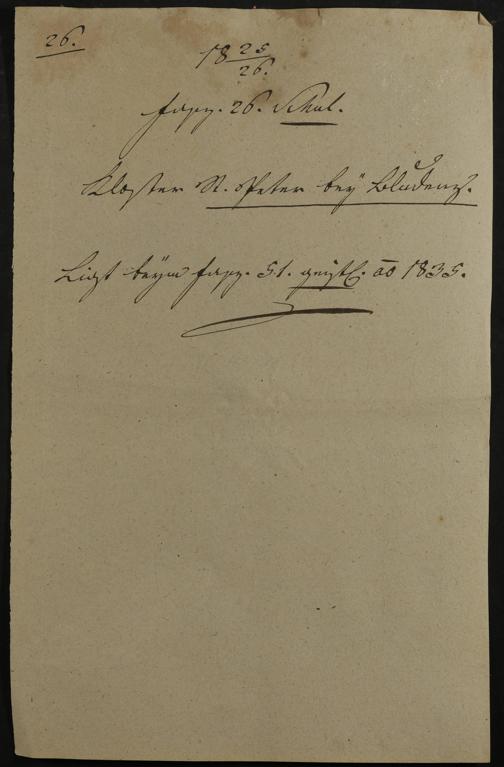 26.
18 25/26.
Fasz. 26. Schul.
Kloster St. Peter bey Bludenz.
Liegt beym Fasz. 51. geistl. ao 1835.